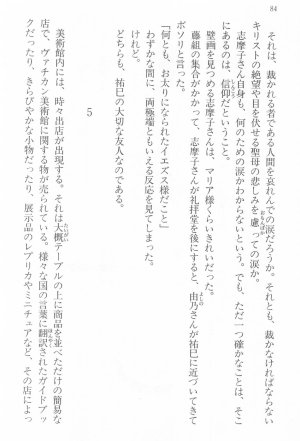 84
それは、裁かれる者である人間を哀れんでの涙だろうか。それとも、裁かなければならない
キリストの絶望や目を伏せる聖母の悲しみを慮っての涙か。
志摩子さん自身も、何のための涙かわからないという。でも、ただ一つ確かなことは、そこ
にあるのは、信仰だということ。
壁画を見つめる志摩子さんは、マリア様くらいきれいだった。
藤組の集合がかかって、志摩子さんが礼拝堂を後にすると、由乃さんが祐巳に近づいてきて
ボソリと言った。
「何とも、お太りになられたイエズス様だこと」
わずかな間に、両極端ともいえる反応を見てしまった。
けれど。
どちらも、祐巳の大切な友人なのである。
5
美術館内には、時々出店が出現する。それは大概テーブルの上に商品を並べただけの簡易な
店で、ヴァチカン美術館に関する物が売られている。様々な国の言葉に翻訳されたガイドブッ
クだったり、きらびやかな小物だったり、展示品のレプリカやミニチュアなど、その店によっ